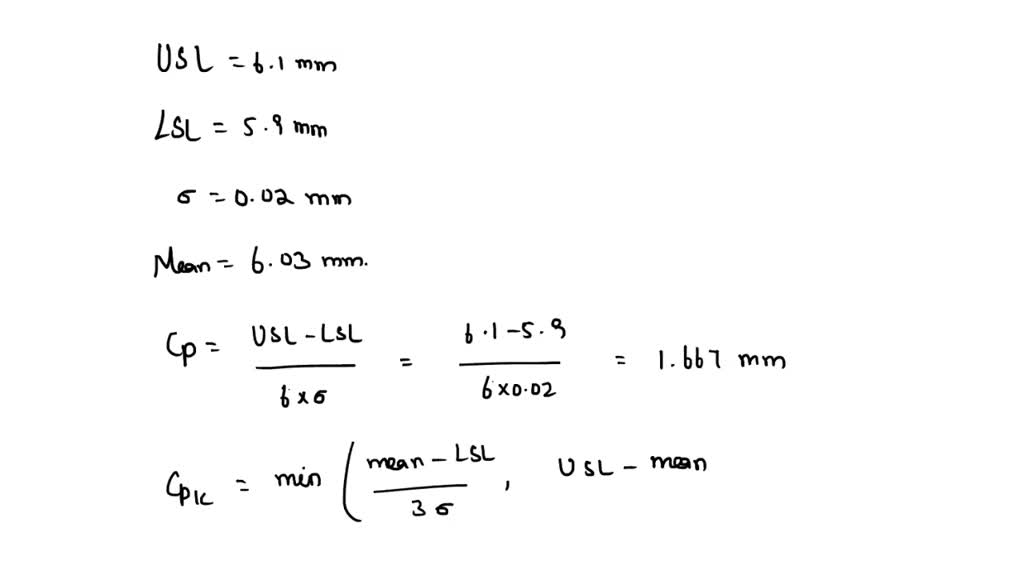 USL = 6.1 mm
LSL = 5.9 mm
σ = 0.02 mm
Mean = 6.03 mm.
Cp = USL - LSL / 6 × σ = 6.1 - 5.9 / 6 × 0.02 = 1.667 mm
Cpk = min ( mean - LSL / 3σ , USL - mean